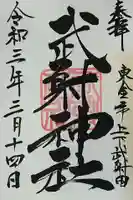 奉拝
東金市上武射田
武射神社
令和三年三月十四日